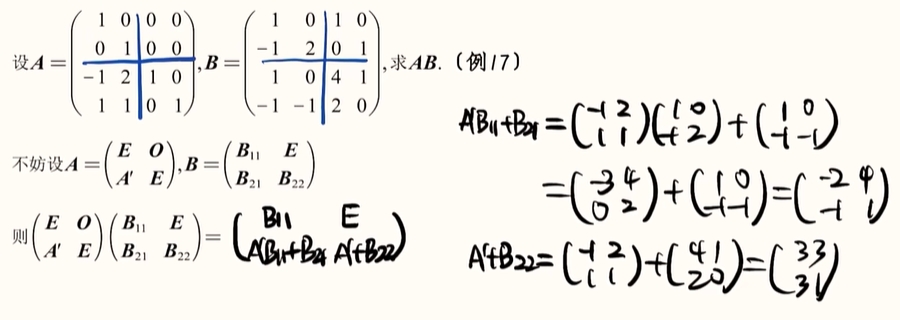 设A=(1 0 0 0; 0 1 0 0; -1 2 1 0; 1 1 0 1),B=(1 0 1 0; -1 2 0 1; 1 0 4 1; -1 -1 2 0),求AB.(例17)
不妨设A=(E O; A′ E),B=(B₁₁ E; B₂₁ B₂₂)
则(E O; A′ E)(B₁₁ E; B₂₁ B₂₂)=(B11 E; A'B11+B21 A'+B22)
A'B11+B21=(-1 2; 1 1)(1 0; -1 2)+(1 0; -1 -1)
=(-3 4; 0 2)+(1 0; -1 -1)=(-2 4; -1 1)
A'+B22=(-1 2; 1 1)+(4 1; 2 0)=(3 3; 3 1)